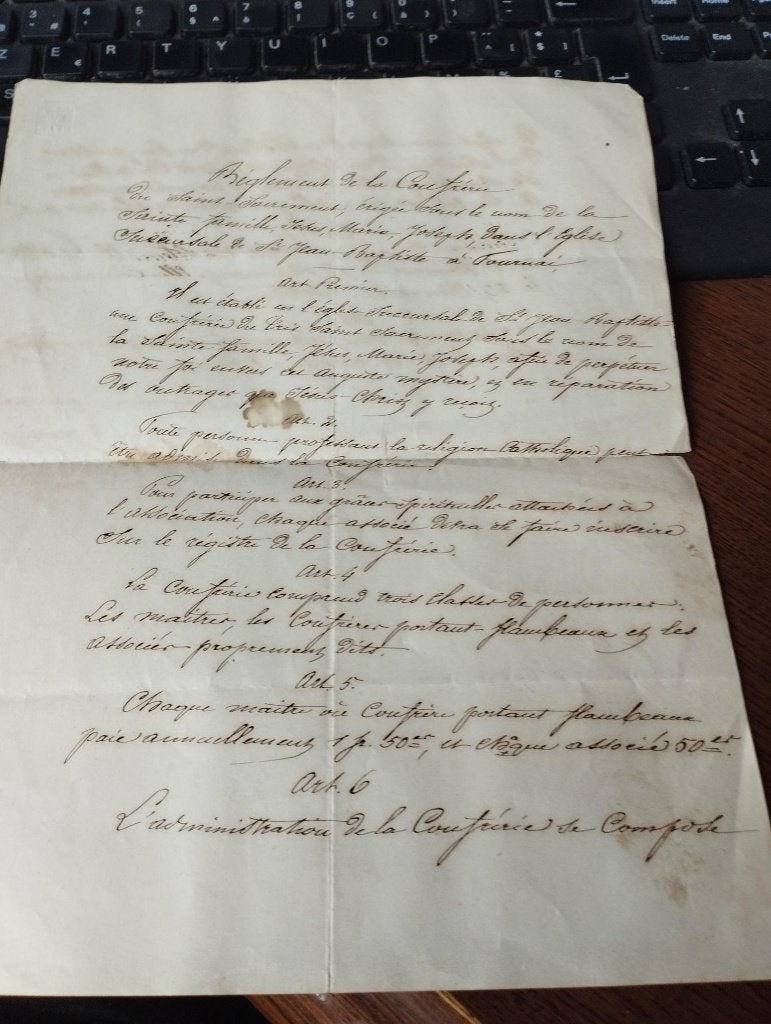 Z E R T Y U I O P
Delete End
Règlement de la Confrérie
du Saint Sacrement, érigée sous le nom de la
Sainte famille, Jésus, Marie, Joseph, dans l'Eglise
Succursale de St Jean-Baptiste à Tournai.
Art. Premier.
Il est établi en l'église Succursal de St Jean Baptiste
une confrérie du très Saint Sacrement sous le nom de
la Sainte famille, Jésus, Marie, Joseph, afin de perpétuer
notre foi envers cet auguste mystère, et en réparation
des outrages que Jésus-Christ y reçoit.
Art. 2.
Toute personne professant la religion Catholique peut
être admis dans la Confrérie.
Art. 3.
Pour participer aux grâces spirituelles attachées à
l'association, chaque associé devra se faire inscrire
sur le régistre de la Confrérie.
Art. 4
La confrérie comprend trois classes de personnes:
Les maîtres, les Confrères portant-flambeaux et les
associés proprement dits.
Art. 5.
Chaque maître ou Confrère portant flambeaux
paie annuellement 1 fr. 50, et chaque associé 50.
Art. 6
L'administration de la Confrérie se compose